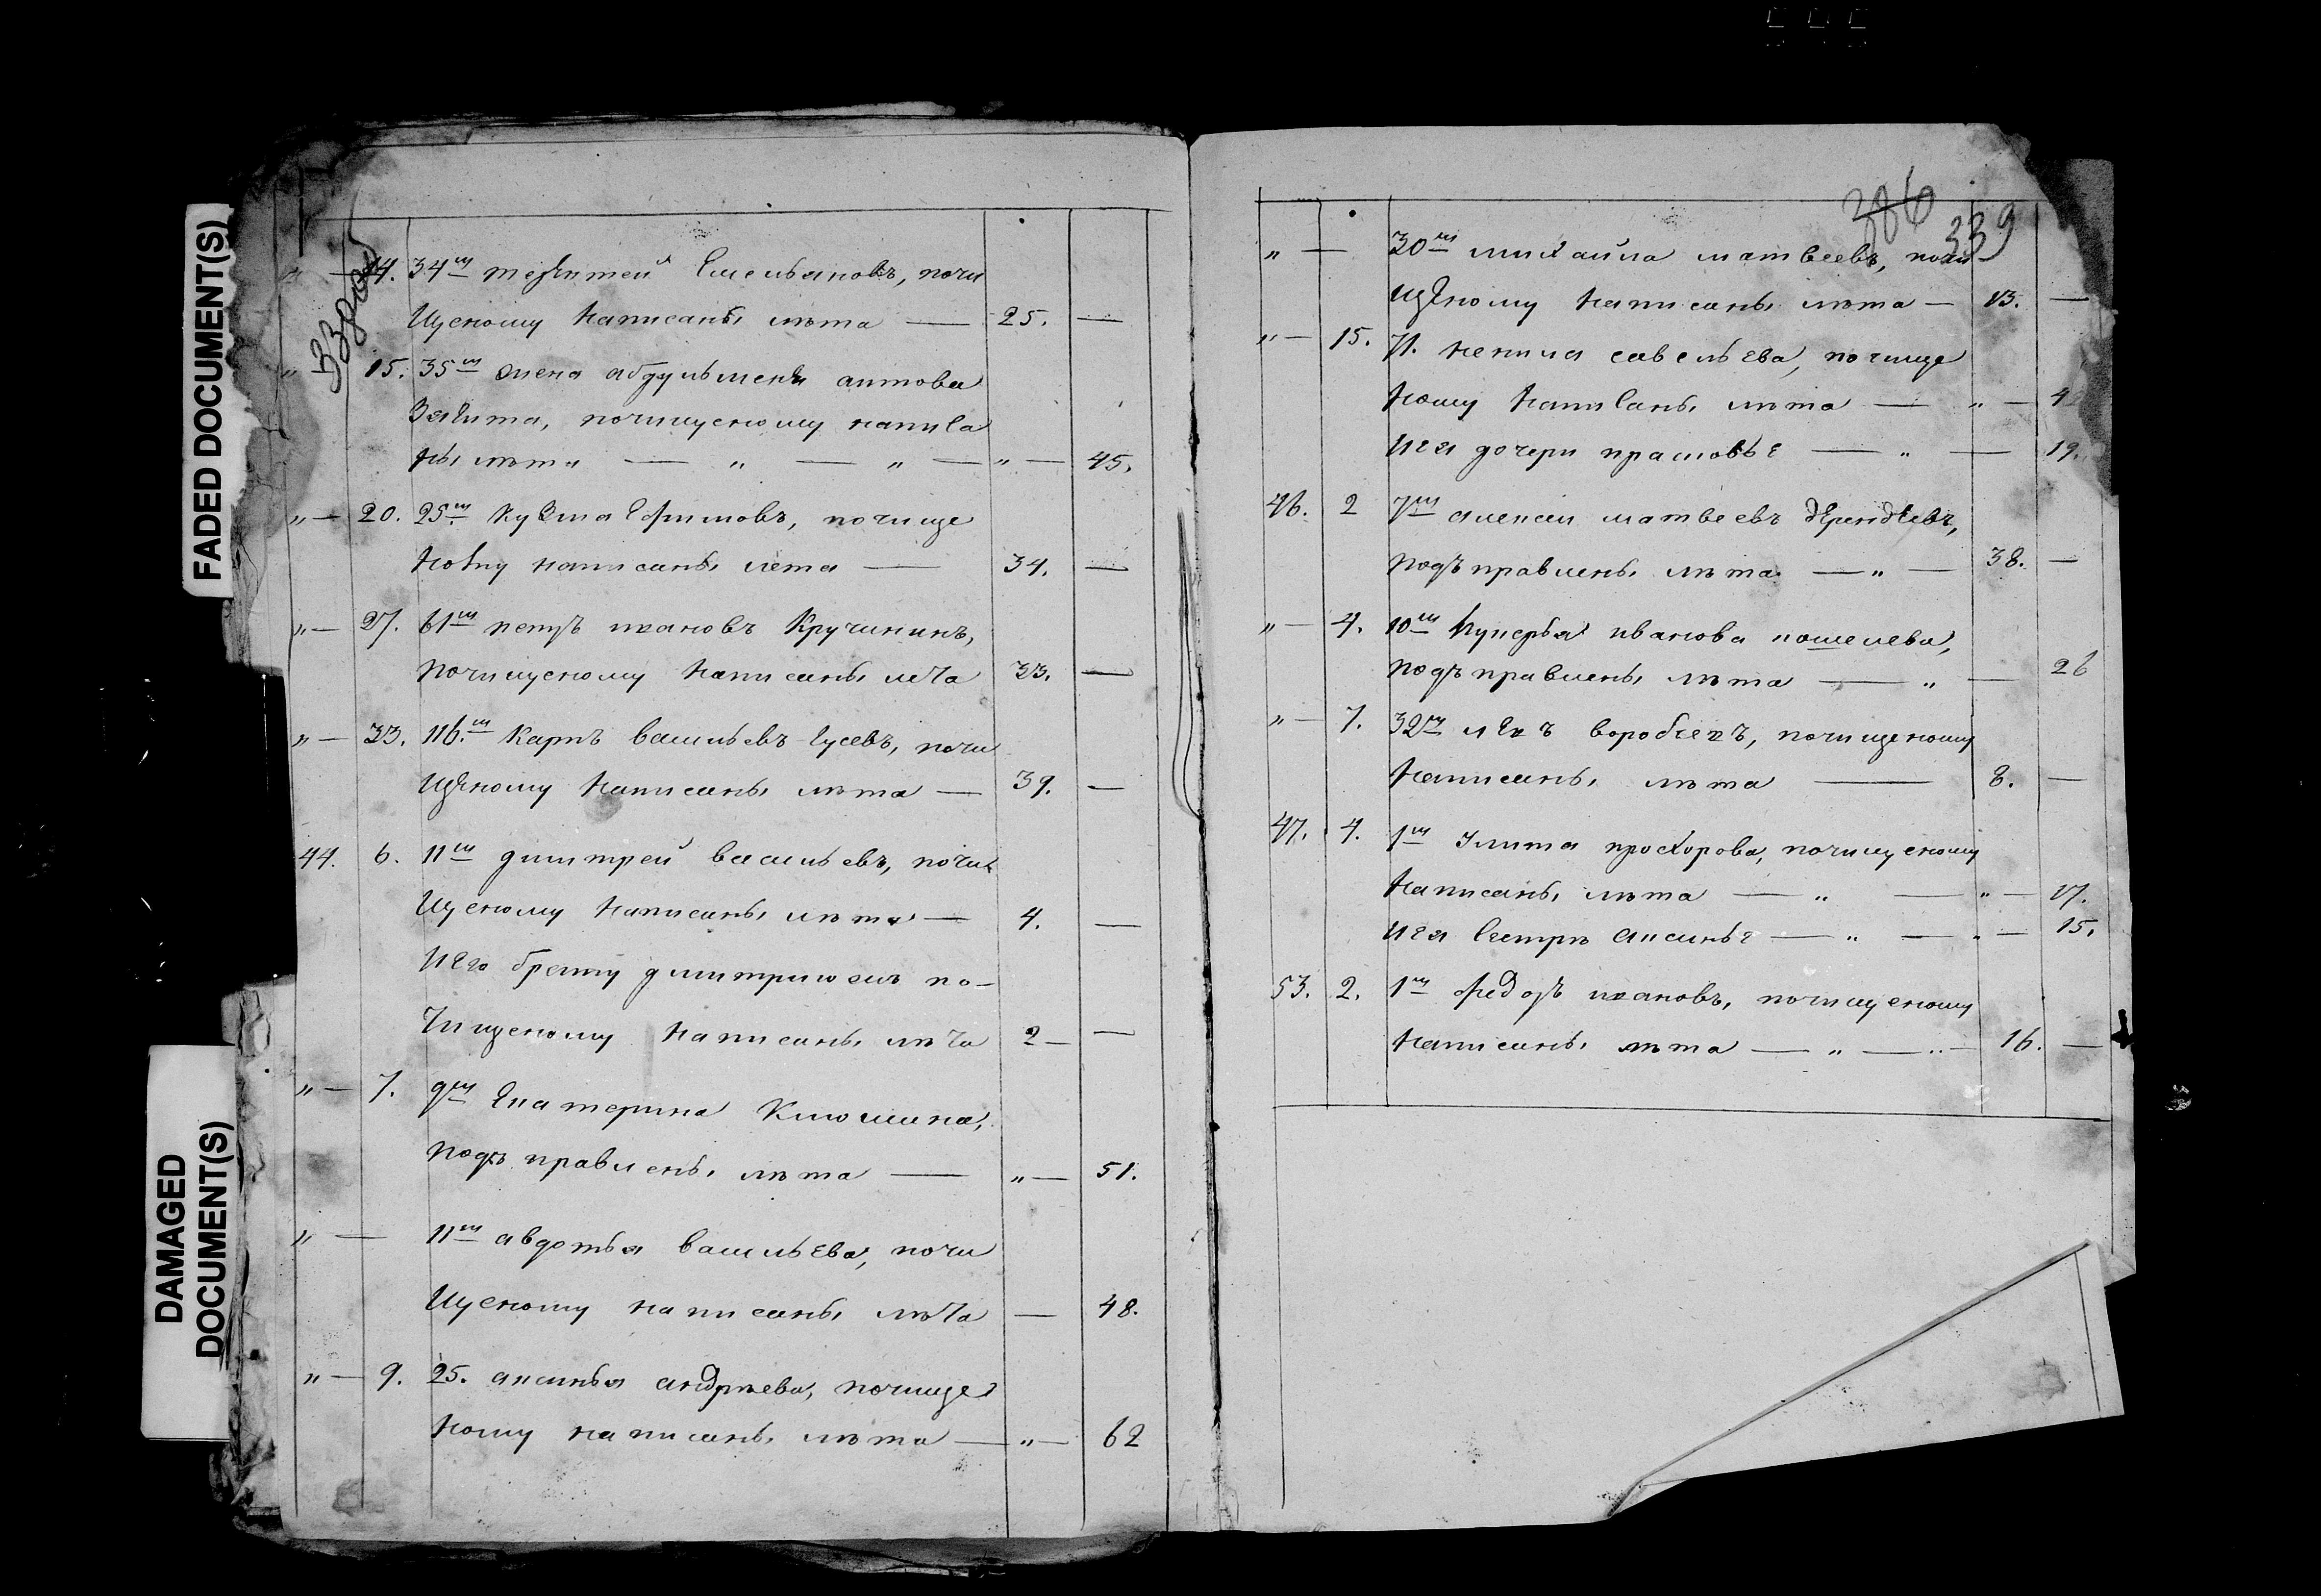 FADED DOCUMENT(S)
DAMAGED
DOCUMENT(S)
" — 14. 34м Емельяновъ, почи
щеному написаны лѣта — 25. —
" 15. 35м жена абдульменя аитова
Зяеита, почищеному написа
ны лѣта — " — " — " — 45.
" — 20. 25м Кузма Ефимовъ, почище
ному написаны лета — 34. —
" — 27. 61м петръ ивановъ Кручининъ,
почищеному написаны лета 33. —
" — 33. 116.м Карпъ васильевъ Гусевъ, почи
щеному написаны лѣта — 39. —
44. 6. 11м дмитрей васильевъ, почи
щеному написаны лѣта — 4. —
Иего брату дмитрию емъ по-
чищеному написаны лѣта 2 — —
" — 7. 9м Екатерина Клюшина,
подъправлены лѣта — " — 51.
" — 11м авдотья васильева, почи
щеному написаны лѣта — 48.
" — 9. 25. аксинья андрѣева, почище
ному написаны лѣта — " — 62
386
339
" — 30м михайла матвеевъ, почи
щеному написаны лѣта — 13. —
" — 15. 71. ненила савельева, почище
ному написаны лѣта — " — 4
Иея дочери прасковье — " — 19.
46. 2 7м алексеи матвеевъ
подъправлены лѣта — " — 38. —
" — 4. 10м Лукерья иванова кошелева,
подъправлены лѣта — " — 26
" — 7. 32м воробьевъ, почищеному
написаны лѣта — 8. —
47. 4. 1м Улита прохорова, почищеному
написаны лѣта — " — " — 17.
Иея Сестрѣ аксинье — " — " — 15.
53. 2. 1м Федоръ ивановъ, почищеному
написаны лѣта — " — " — 16. —